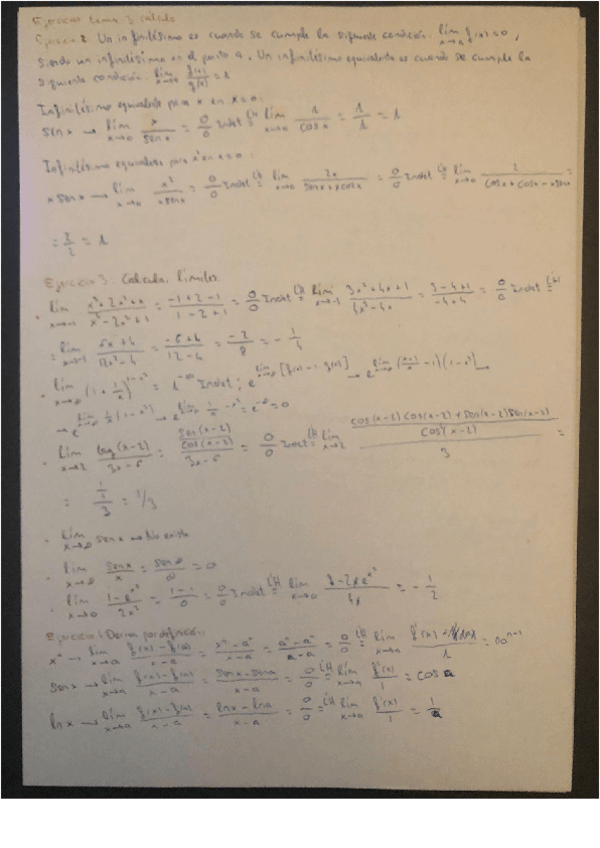 Ejercicios tema 3 cálculo
Ejercicio 2: Un infinitésimo es cuando se cumple la siguiente condición: lim x→a f(x) = 0,
siendo un infinitésimo en el punto a. Un infinitésimo equivalente es cuando se cumple la
siguiente condición: lim x→a f(x)/g(x) = 1
Infinitésimo equivalente para x en x=0:
sen x → lim x→0 x/sen x = 0/0 Indet L'H = lim x→0 1/cos x = 1/1 = 1
Infinitésimo equivalente para x² en x=0:
x sen x → lim x→0 x²/x sen x = 0/0 Indet L'H = lim x→0 2x/sen x + x cos x = 0/0 Indet L'H = lim x→0 2/cos x + cos x - x sen x =
= 2/2 = 1
Ejercicio 3: Calcula límites
· lim x→-1 x³+2x²+x/x⁴-2x²+1 = -1+2-1/1-2+1 = 0/0 Indet L'H = lim x→-1 3x²+4x+1/4x³-4x = 3-4+1/-4+4 = 0/0 Indet L'H
= lim x→-1 6x+4/12x²-4 = -6+4/12-4 = -2/8 = -1/4
· lim x→∞ (1+1/x)^(1-x²) = 1^-∞ Indet; e^lim x→∞ [f(x)-1·g(x)] → e^lim x→∞ (x+1/x -1)(1-x²) →
→ e^lim x→∞ 1/x (1-x²) → e^lim x→∞ 1/x -x² = e^-∞ = 0
· lim x→2 tag(x-2)/3x-6 = sen(x-2)/cos(x-2)/3x-6 = 0/0 Indet L'H = lim x→2 cos(x-2)cos(x-2)+sen(x-2)sen(x-2)/cos²(x-2)/3 =
= 1/1/3 = 1/3
· lim x→∞ sen x → No existe
· lim x→∞ sen x/x = sen ∞/∞ = 0
· lim x→0 1-e^x²/2x² = 1-1/0 = 0/0 Indet L'H = lim x→0 -2xe^x²/4x = -1/2
Ejercicio 1: Deriva por definición:
xⁿ → lim x→a f(x)-f(a)/x-a = xⁿ-aⁿ/x-a = aⁿ-aⁿ/a-a = 0/0 L'H = lim x→a
sen x → lim x→a f(x)-f(a)/x-a = sen x - sen a/x-a = 0/0 L'H = lim x→a f'(x)/1 = cos a
ln x → lim x→a f(x)-f(a)/x-a = ln x - ln a/x-a = 0/0 = L'H lim x→a f'(x)/1 = 1/a